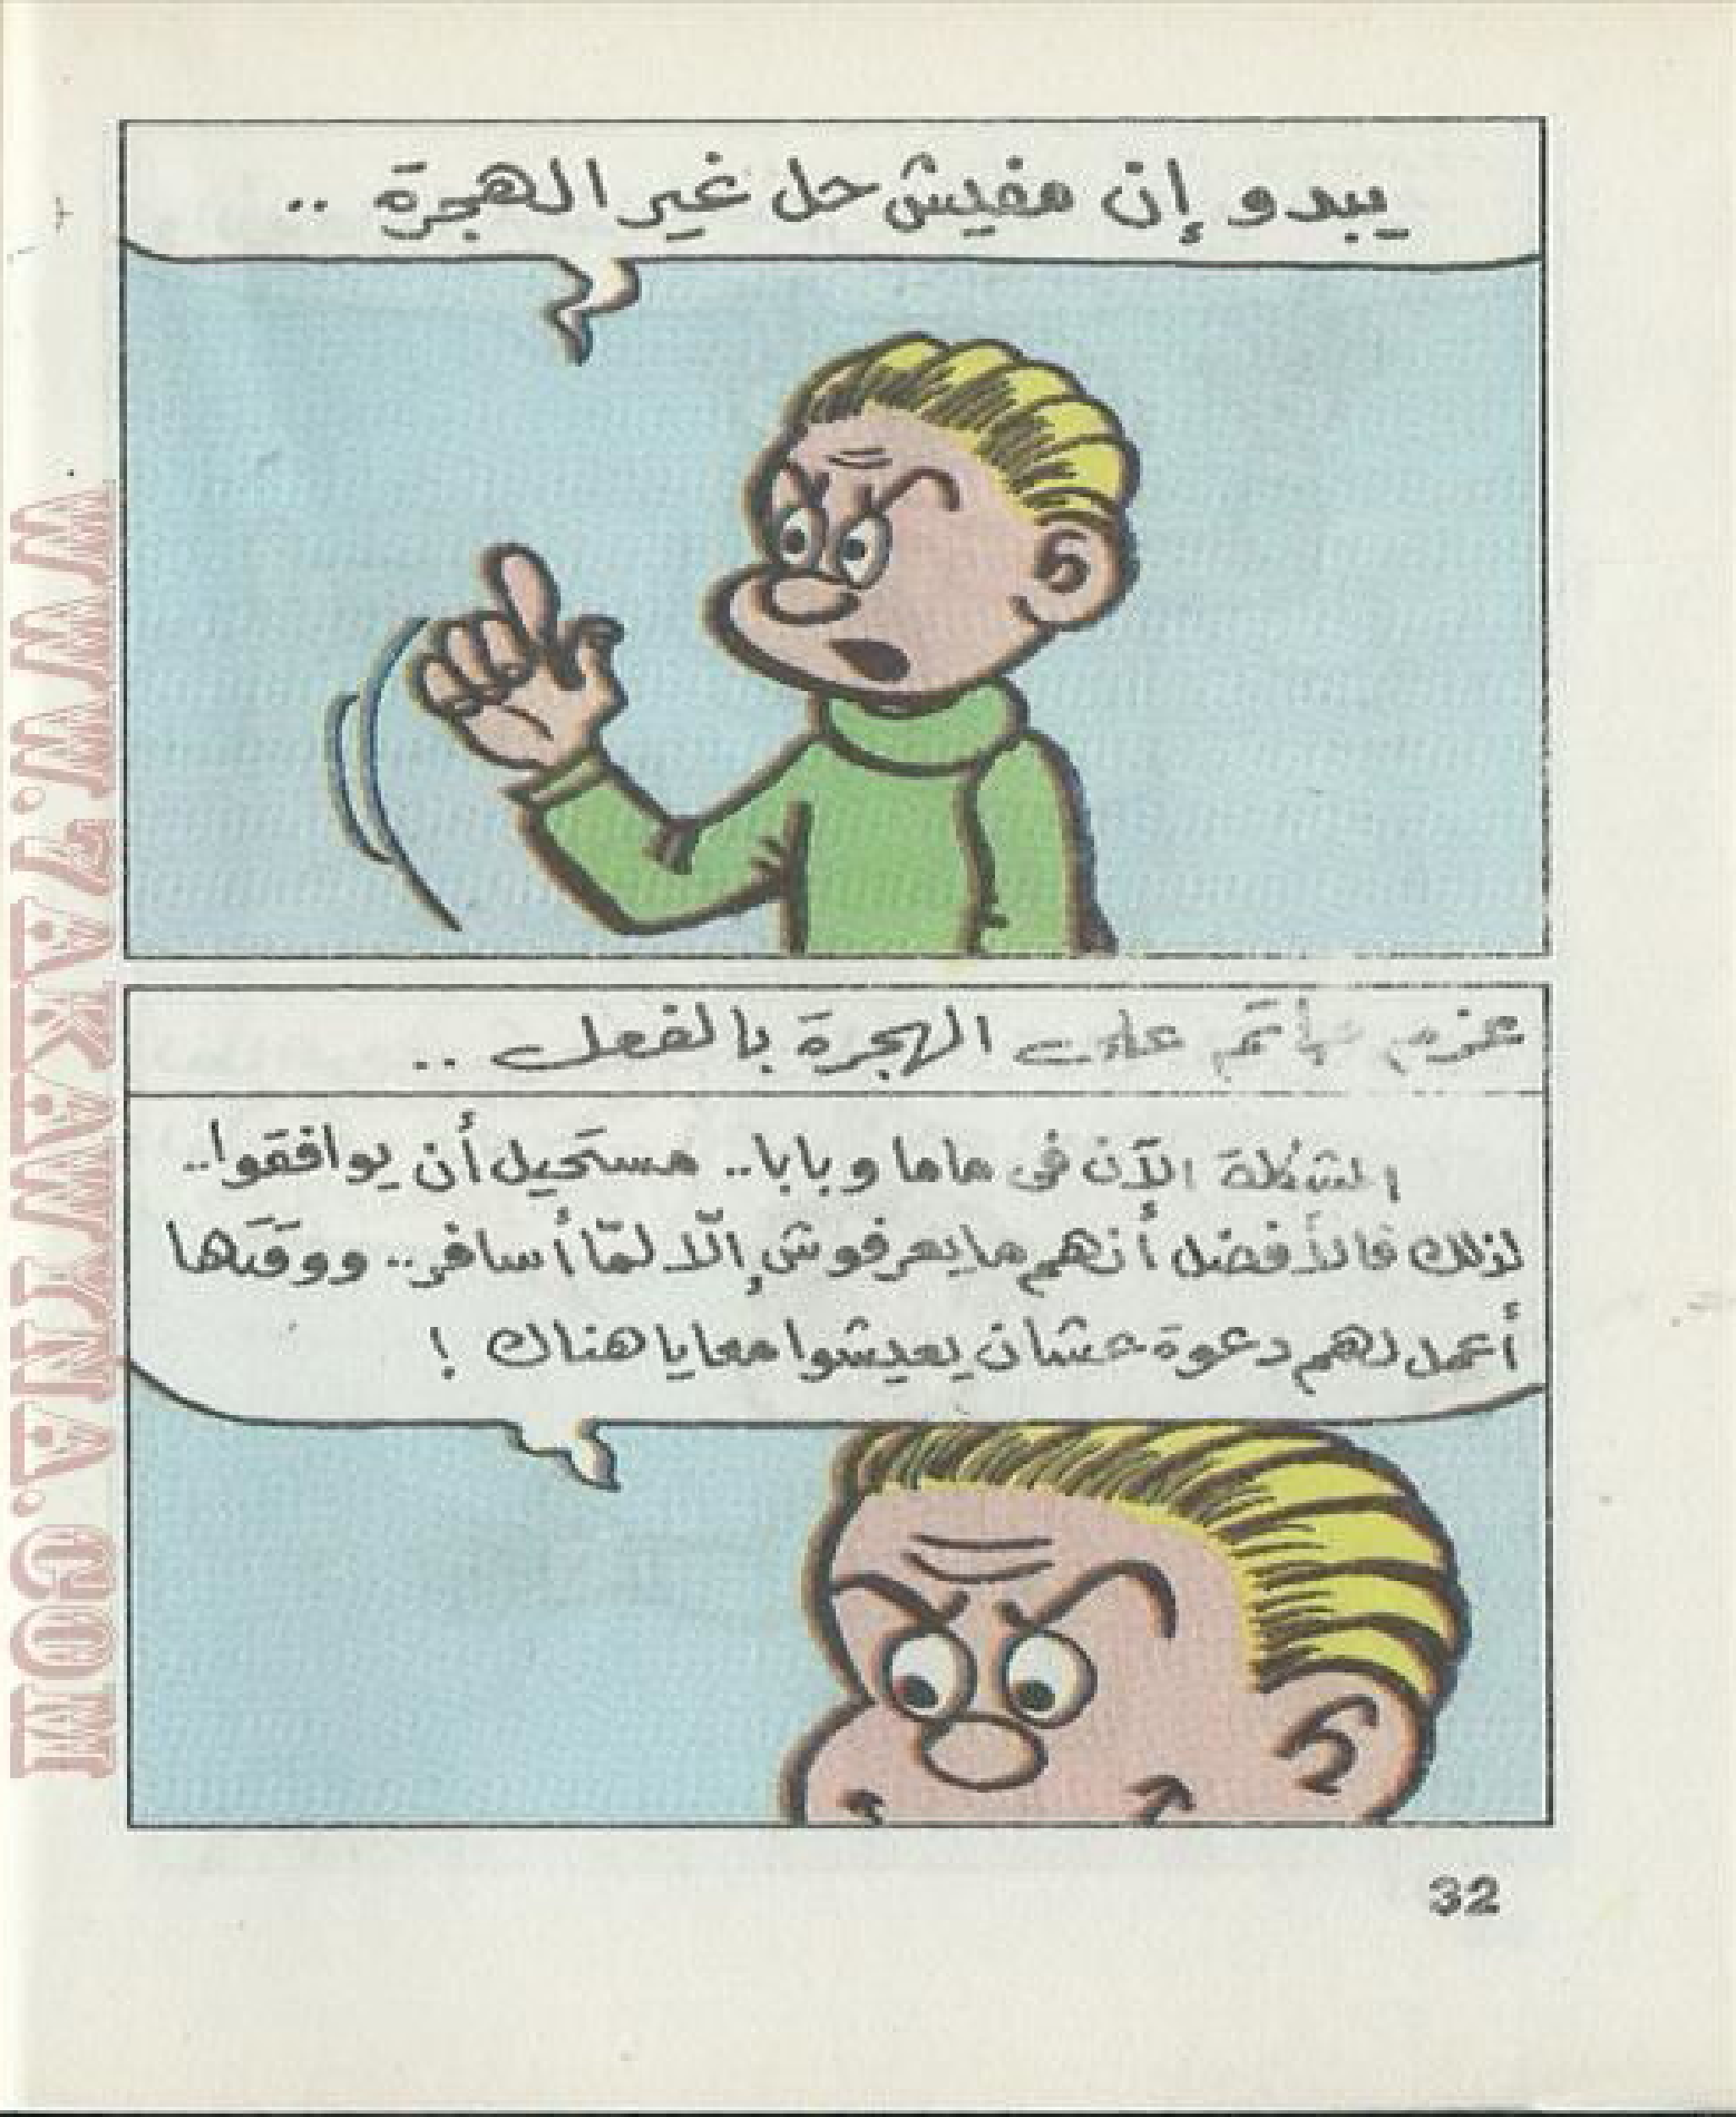 يبدو إن مفيش حل غير الهجرة ..
عزم حاتم على الهجرة بالفعل ..
المشكلة الآن فى ماما وبابا.. مستحيل أن يوافقوا..
لذلك فالأفضل أنهم مايعرفوش إلّا لمّا أسافر.. ووقتها
أعمل لهم دعوة عشان يعيشوا معايا هناك !
32
WWW.ZAKAWINA.COM